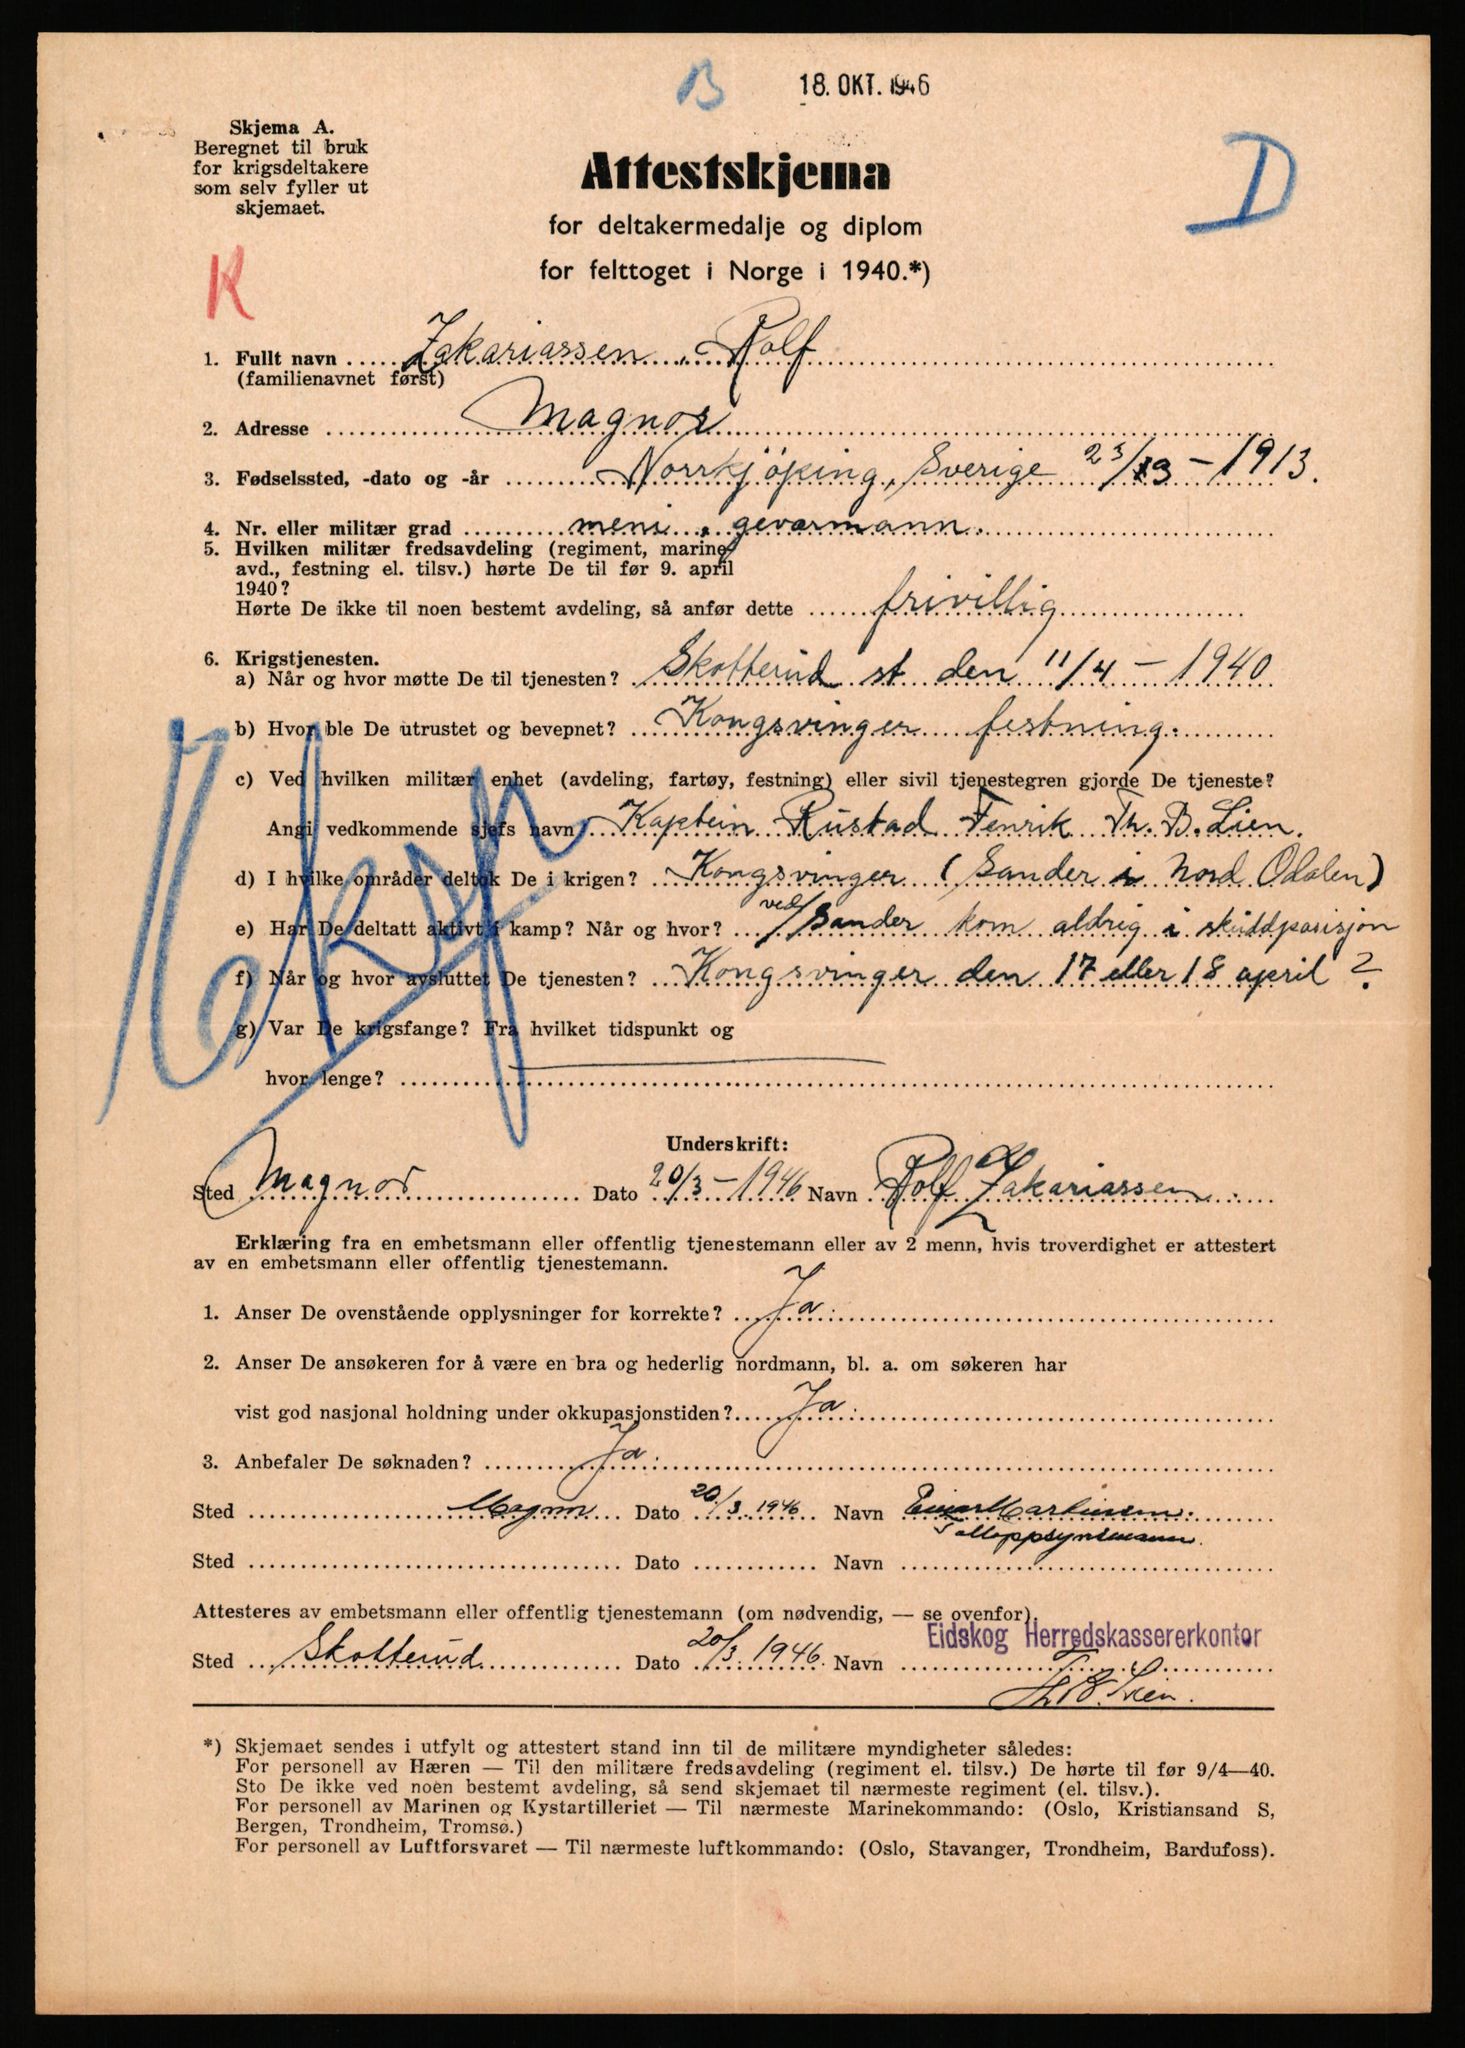 B
18. OKT. 1946
Skjema A.
Beregnet til bruk
for krigsdeltakere
som selv fyller ut
skjemaet.
Attestskjema
for deltakermedalje og diplom
for felttoget i Norge i 1940.*)
D
K
1. Fullt navn Zakariassen, Rolf
(familienavnet først)
2. Adresse Magnor
3. Fødselssted, -dato og -år Norrkjøping, Sverige 23/3 - 1913.
4. Nr. eller militær grad meni, geværmann.
5. Hvilken militær fredsavdeling (regiment, marine-
avd., festning el. tilsv.) hørte De til før 9. april
1940?
Hørte De ikke til noen bestemt avdeling, så anfør dette frivillig
6. Krigstjenesten.
a) Når og hvor møtte De til tjenesten? Skotterud st den 11/4 - 1940
b) Hvor ble De utrustet og bevepnet? Kongsvinger festning.
c) Ved hvilken militær enhet (avdeling, fartøy, festning) eller sivil tjenestegren gjorde De tjeneste?
Angi vedkommende sjefs navn Kaptein Rustad Fenrik Th. B. Lien.
d) I hvilke områder deltok De i krigen? Kongsvinger (Sander i Nord Odalen)
e) Har De deltatt aktivt i kamp? Når og hvor? ved Sander kom aldrig i skuddposisjon
f) Når og hvor avsluttet De tjenesten? Kongsvinger den 17 eller 18 april ?
g) Var De krigsfange? Fra hvilket tidspunkt og
hvor lenge?
Underskrift:
Sted Magnor Dato 20/3 - 1946 Navn Rolf Zakariassen
Erklæring fra en embetsmann eller offentlig tjenestemann eller av 2 menn, hvis troverdighet er attestert
av en embetsmann eller offentlig tjenestemann.
1. Anser De ovenstående opplysninger for korrekte? Ja.
2. Anser De ansøkeren for å være en bra og hederlig nordmann, bl. a. om søkeren har
vist god nasjonal holdning under okkupasjonstiden? Ja.
3. Anbefaler De søknaden? Ja.
Sted Magnor Dato 20/3 1946 Navn Einar Martinsen.
Tolloppsynsmann.
Sted Dato Navn
Attesteres av embetsmann eller offentlig tjenestemann (om nødvendig, — se ovenfor).
Eidskog Herredskassererkontor
Sted Skotterud Dato 20/3 1946. Navn
Th. B. Lien.
*) Skjemaet sendes i utfylt og attestert stand inn til de militære myndigheter således:
For personell av Hæren — Til den militære fredsavdeling (regiment el. tilsv.) De hørte til før 9/4—40.
Sto De ikke ved noen bestemt avdeling, så send skjemaet til nærmeste regiment (el. tilsv.).
For personell av Marinen og Kystartilleriet — Til nærmeste Marinekommando: (Oslo, Kristiansand S,
Bergen, Trondheim, Tromsø.)
For personell av Luftforsvaret — Til nærmeste luftkommando: (Oslo, Stavanger, Trondheim, Bardufoss).